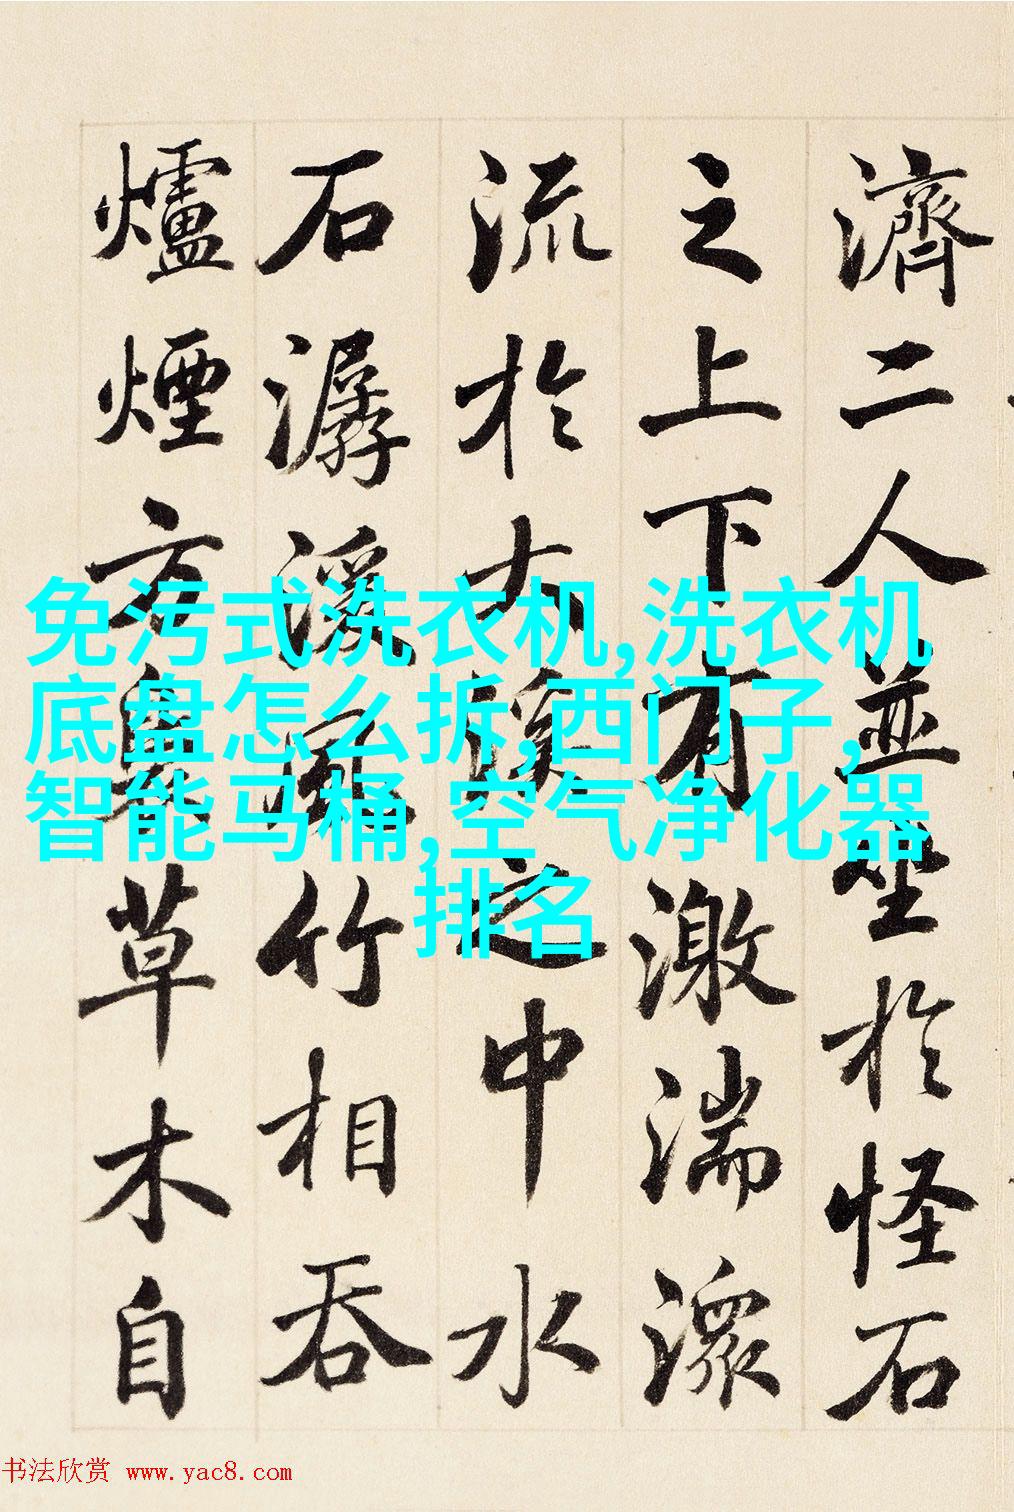 濟二人並坐於怪石
之上下有激湍潨
流於大溪之中水
石潺湲風竹相吞
爐煙方裊草木自
免污式洗衣机,洗衣机
底盘怎么拆,西门子,
智能马桶,空气净化器
排名
书法欣赏 www.yac8.com